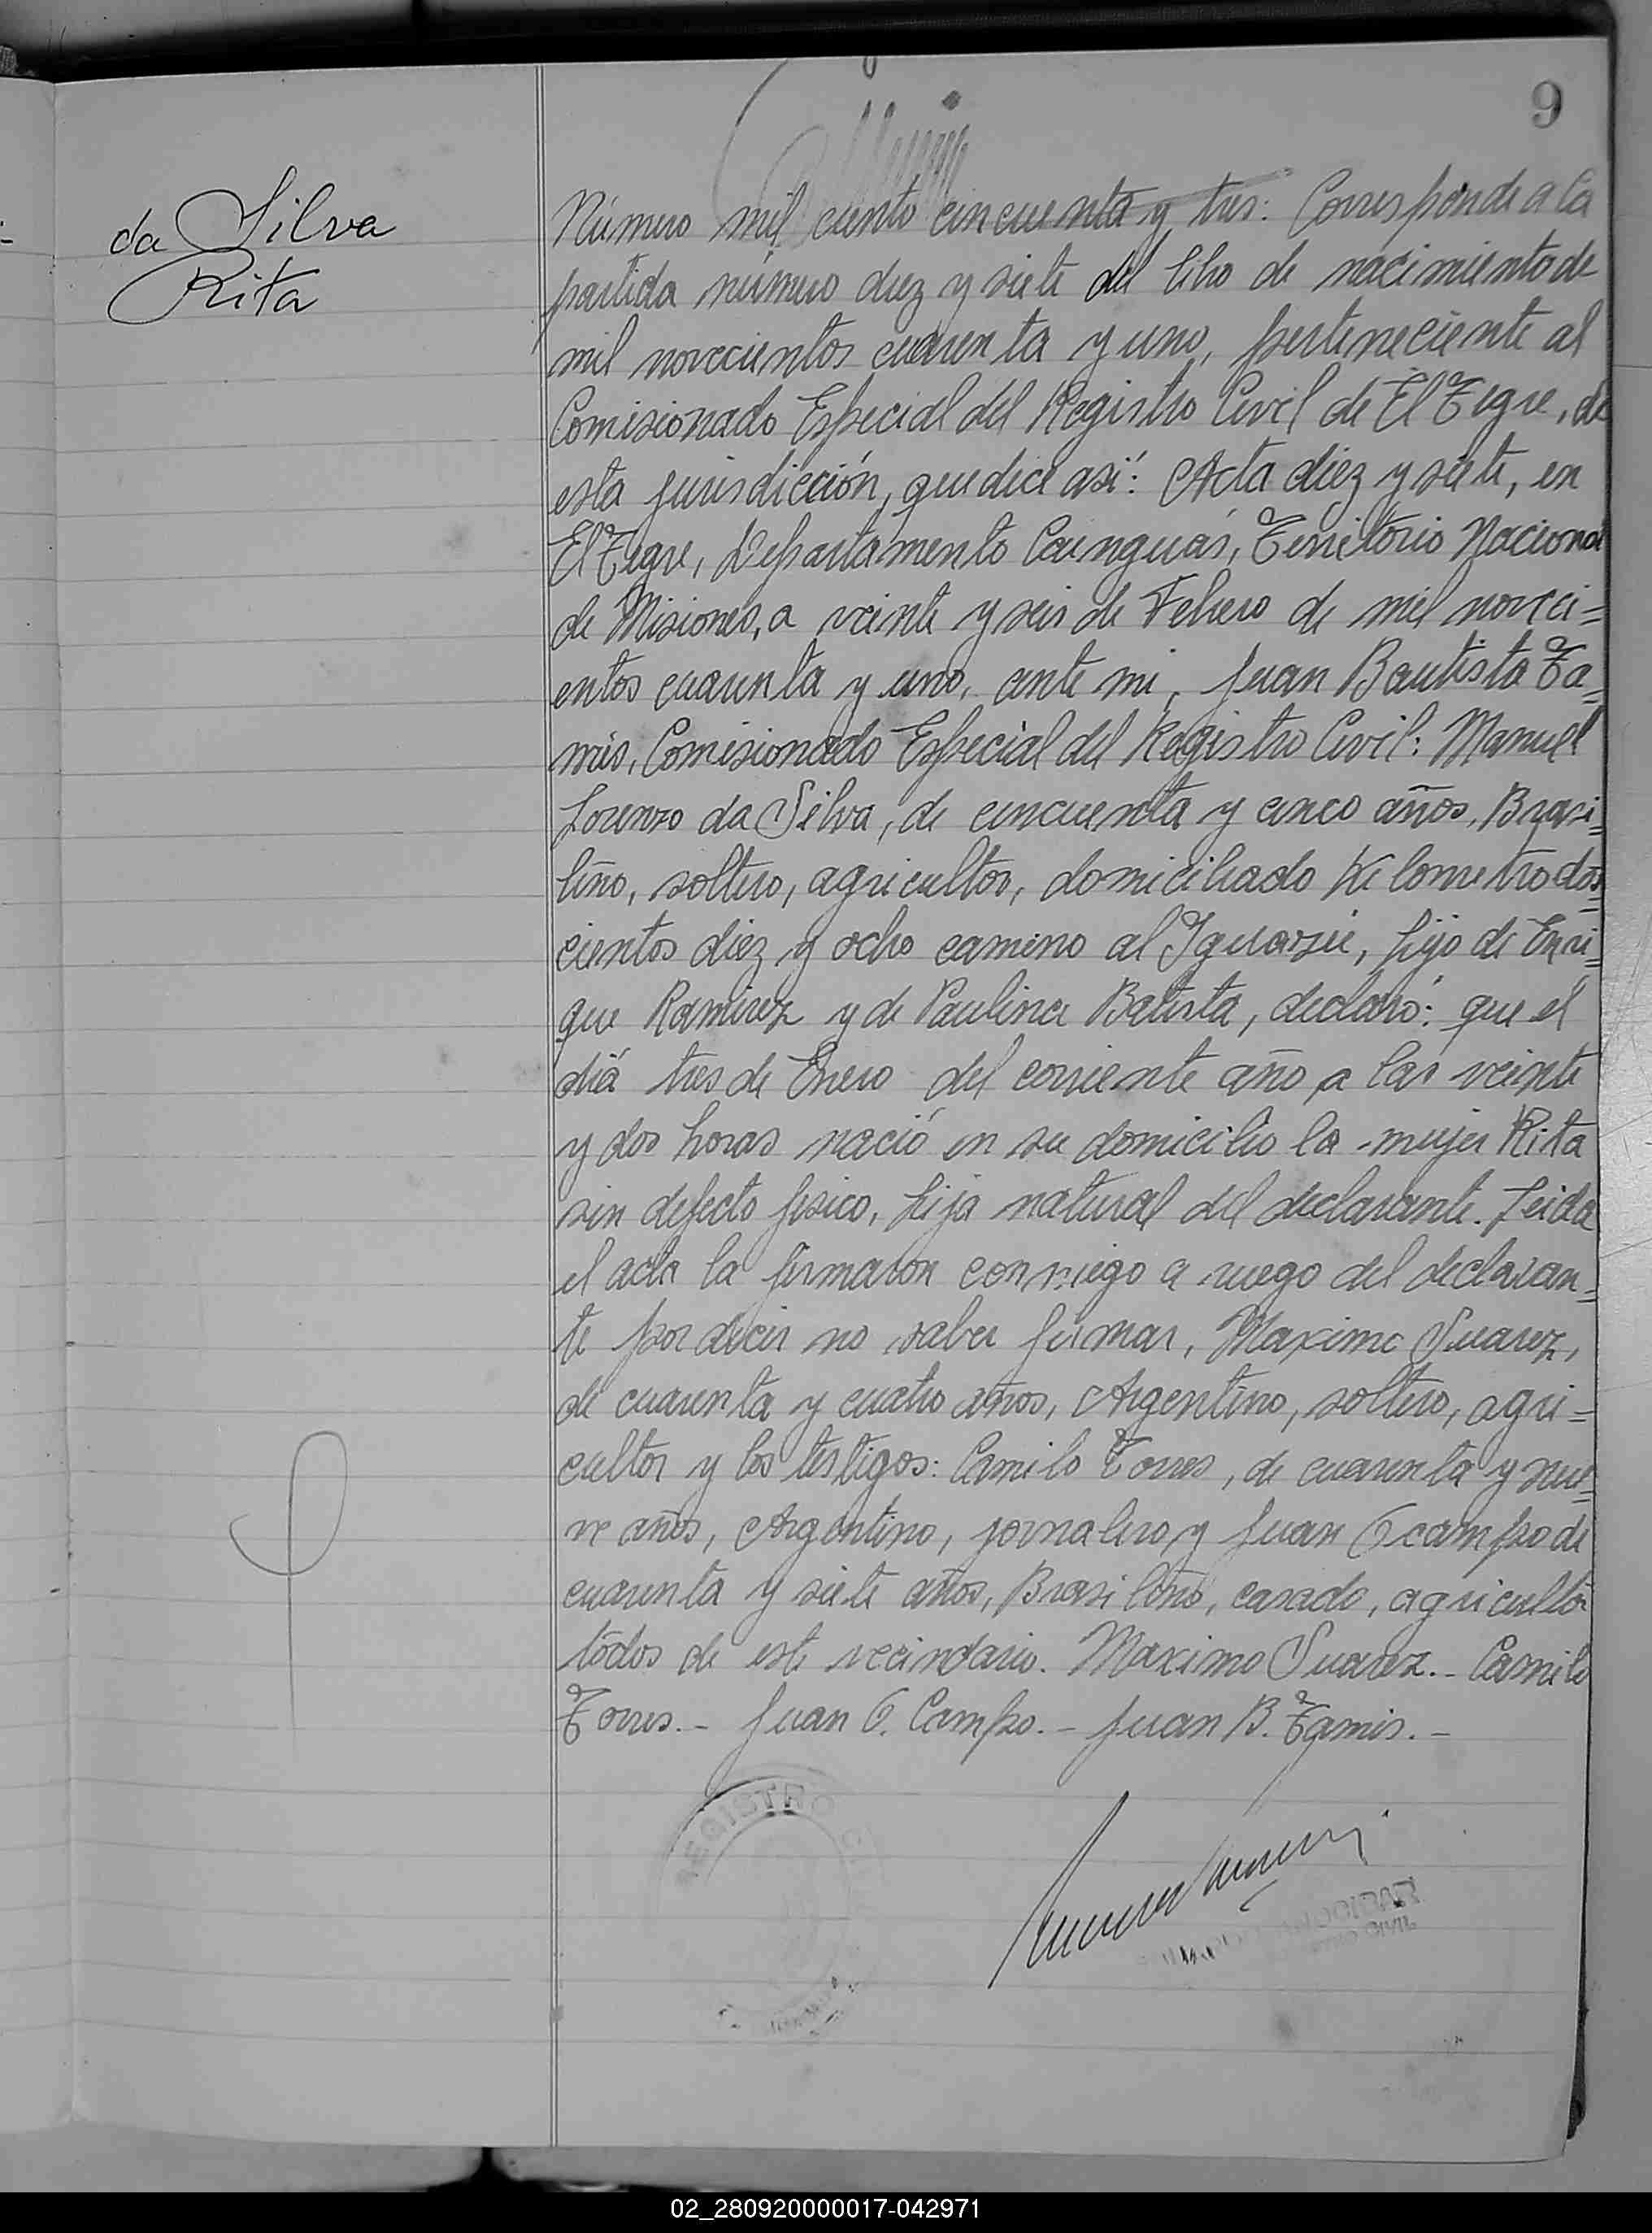 9
da Silva
Rita
Número mil ciento cincuenta y tres: Corresponde a la
partida número diez y siete del libro de nacimiento de
mil novecientos cuarenta y uno, perteneciente al
Comisionado Especial del Registro Civil de El Tigre, de
esta jurisdicción, que dice así: Acta diez y siete, en
El Tigre, Departamento Cainguás, Territorio Nacional
de Misiones, a veinte y seis de Febrero de mil noveci=
entos cuarenta y uno, ante mi, Juan Bautista Ta=
mis, Comisionado Especial del Registro Civil: Manuel
Lorenzo da Silva, de cincuenta y cinco años, Brasi=
leño, soltero, agricultor, domiciliado Kilometro dos=
cientos diez y ocho camino al Iguazú, hijo de Enri=
que Ramirez y de Paulina Batista, declaró: que el
día tres de Enero del corriente año a las veinte
y dos horas nació en su domicilio la mujer Rita
sin defecto fisico, hija natural del declarante. Leida
el acta la firmaron conmigo a ruego del declaran=
te por decir no saber firmar, Maximo Suarez,
de cuarenta y cuatro años, Argentino, soltero, agri=
cultor y los testigos: Camilo Torres, de cuarenta y nue=
ve años, Argentino, jornalero y Juan Ocampo de
cuarenta y siete años, Brasileño, casado, agricultor
todos de este vecindario. Maximo Suarez.- Camilo
Torres.- Juan O. Campo.- Juan B. Tamis.-
REGISTRO
CIVIL
02_280920000017-042971